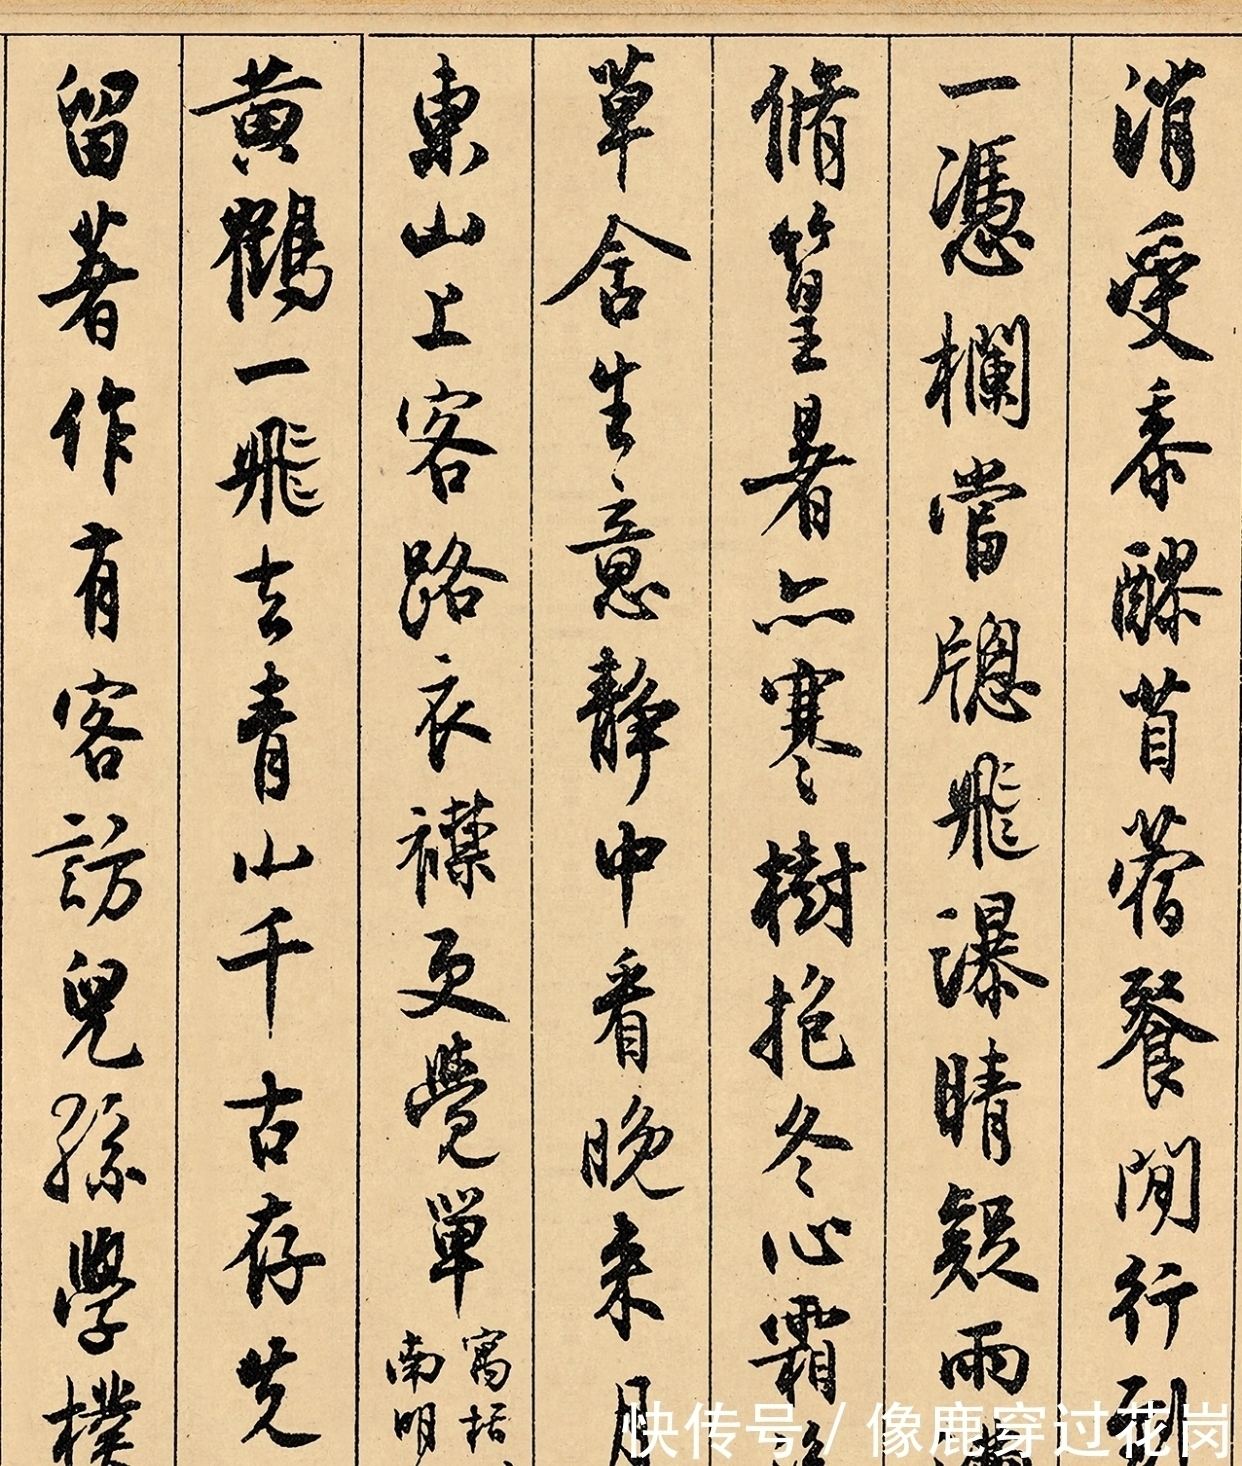 消受黍醪苜蓿餐閒行到
一憑欄當牕飛瀑晴疑雨
脩篁暑亦寒樹抱冬心霜
草舍生意靜中看晚來月
東山上客路衣襟更覺單
寓栝
南明
黃鶴一飛去青山千古存先
留著作有客訪兒孫學樸
快传号 / 像鹿穿过花岗